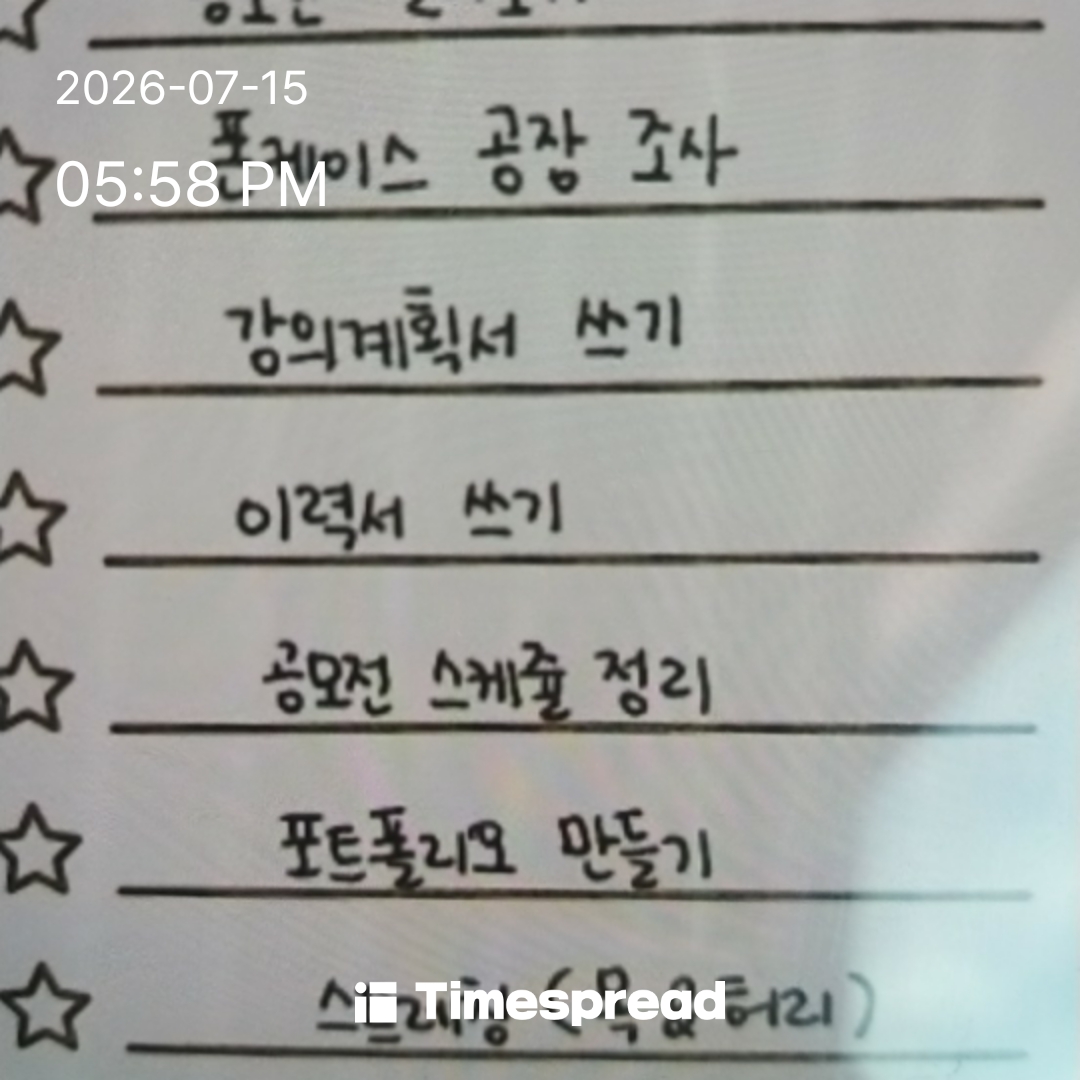 2026-07-15
폰케이스 공장 조사
05:58 PM
강의계획서 쓰기
이력서 쓰기
공모전 스케쥴 정리
포트폴리오 만들기
스트레칭 (목 허리)
Timespread